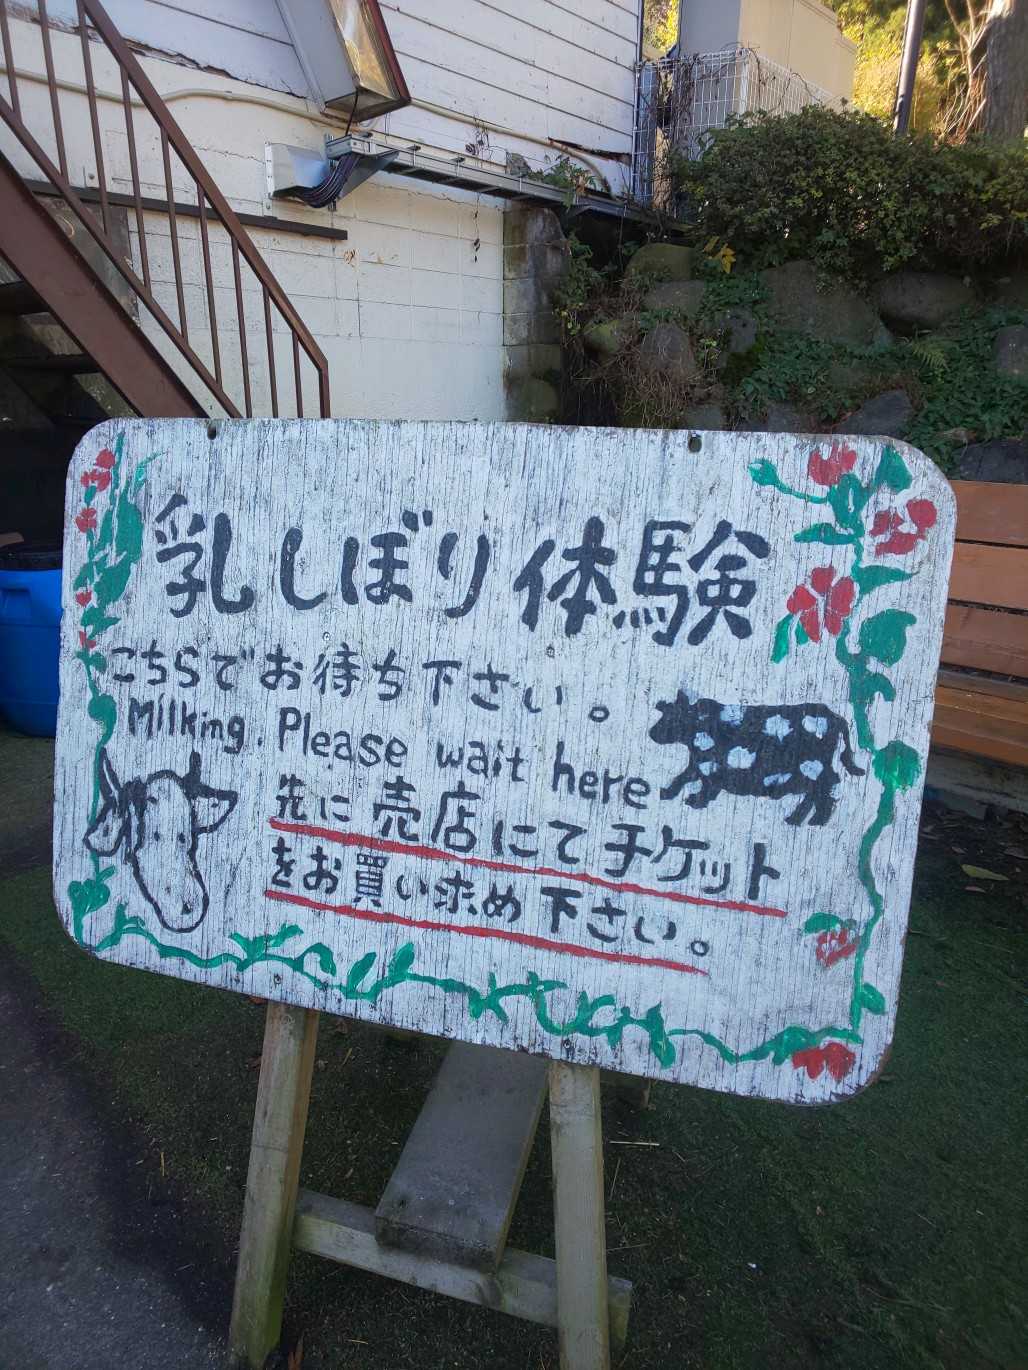 乳しぼり体験
こちらでお待ち下さい。
Milking. Please wait here
先に売店にてチケット
をお買い求め下さい。